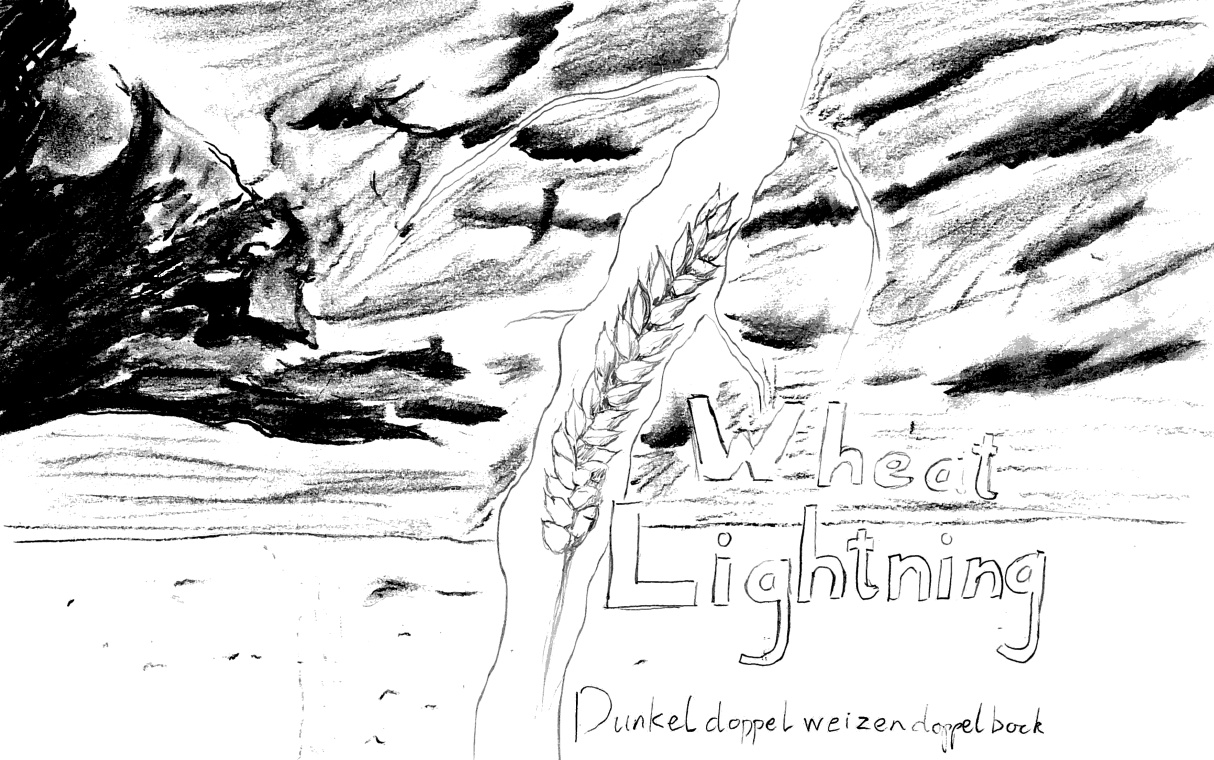 Wheat
Lightning
Dunkel doppel weizen doppel bock